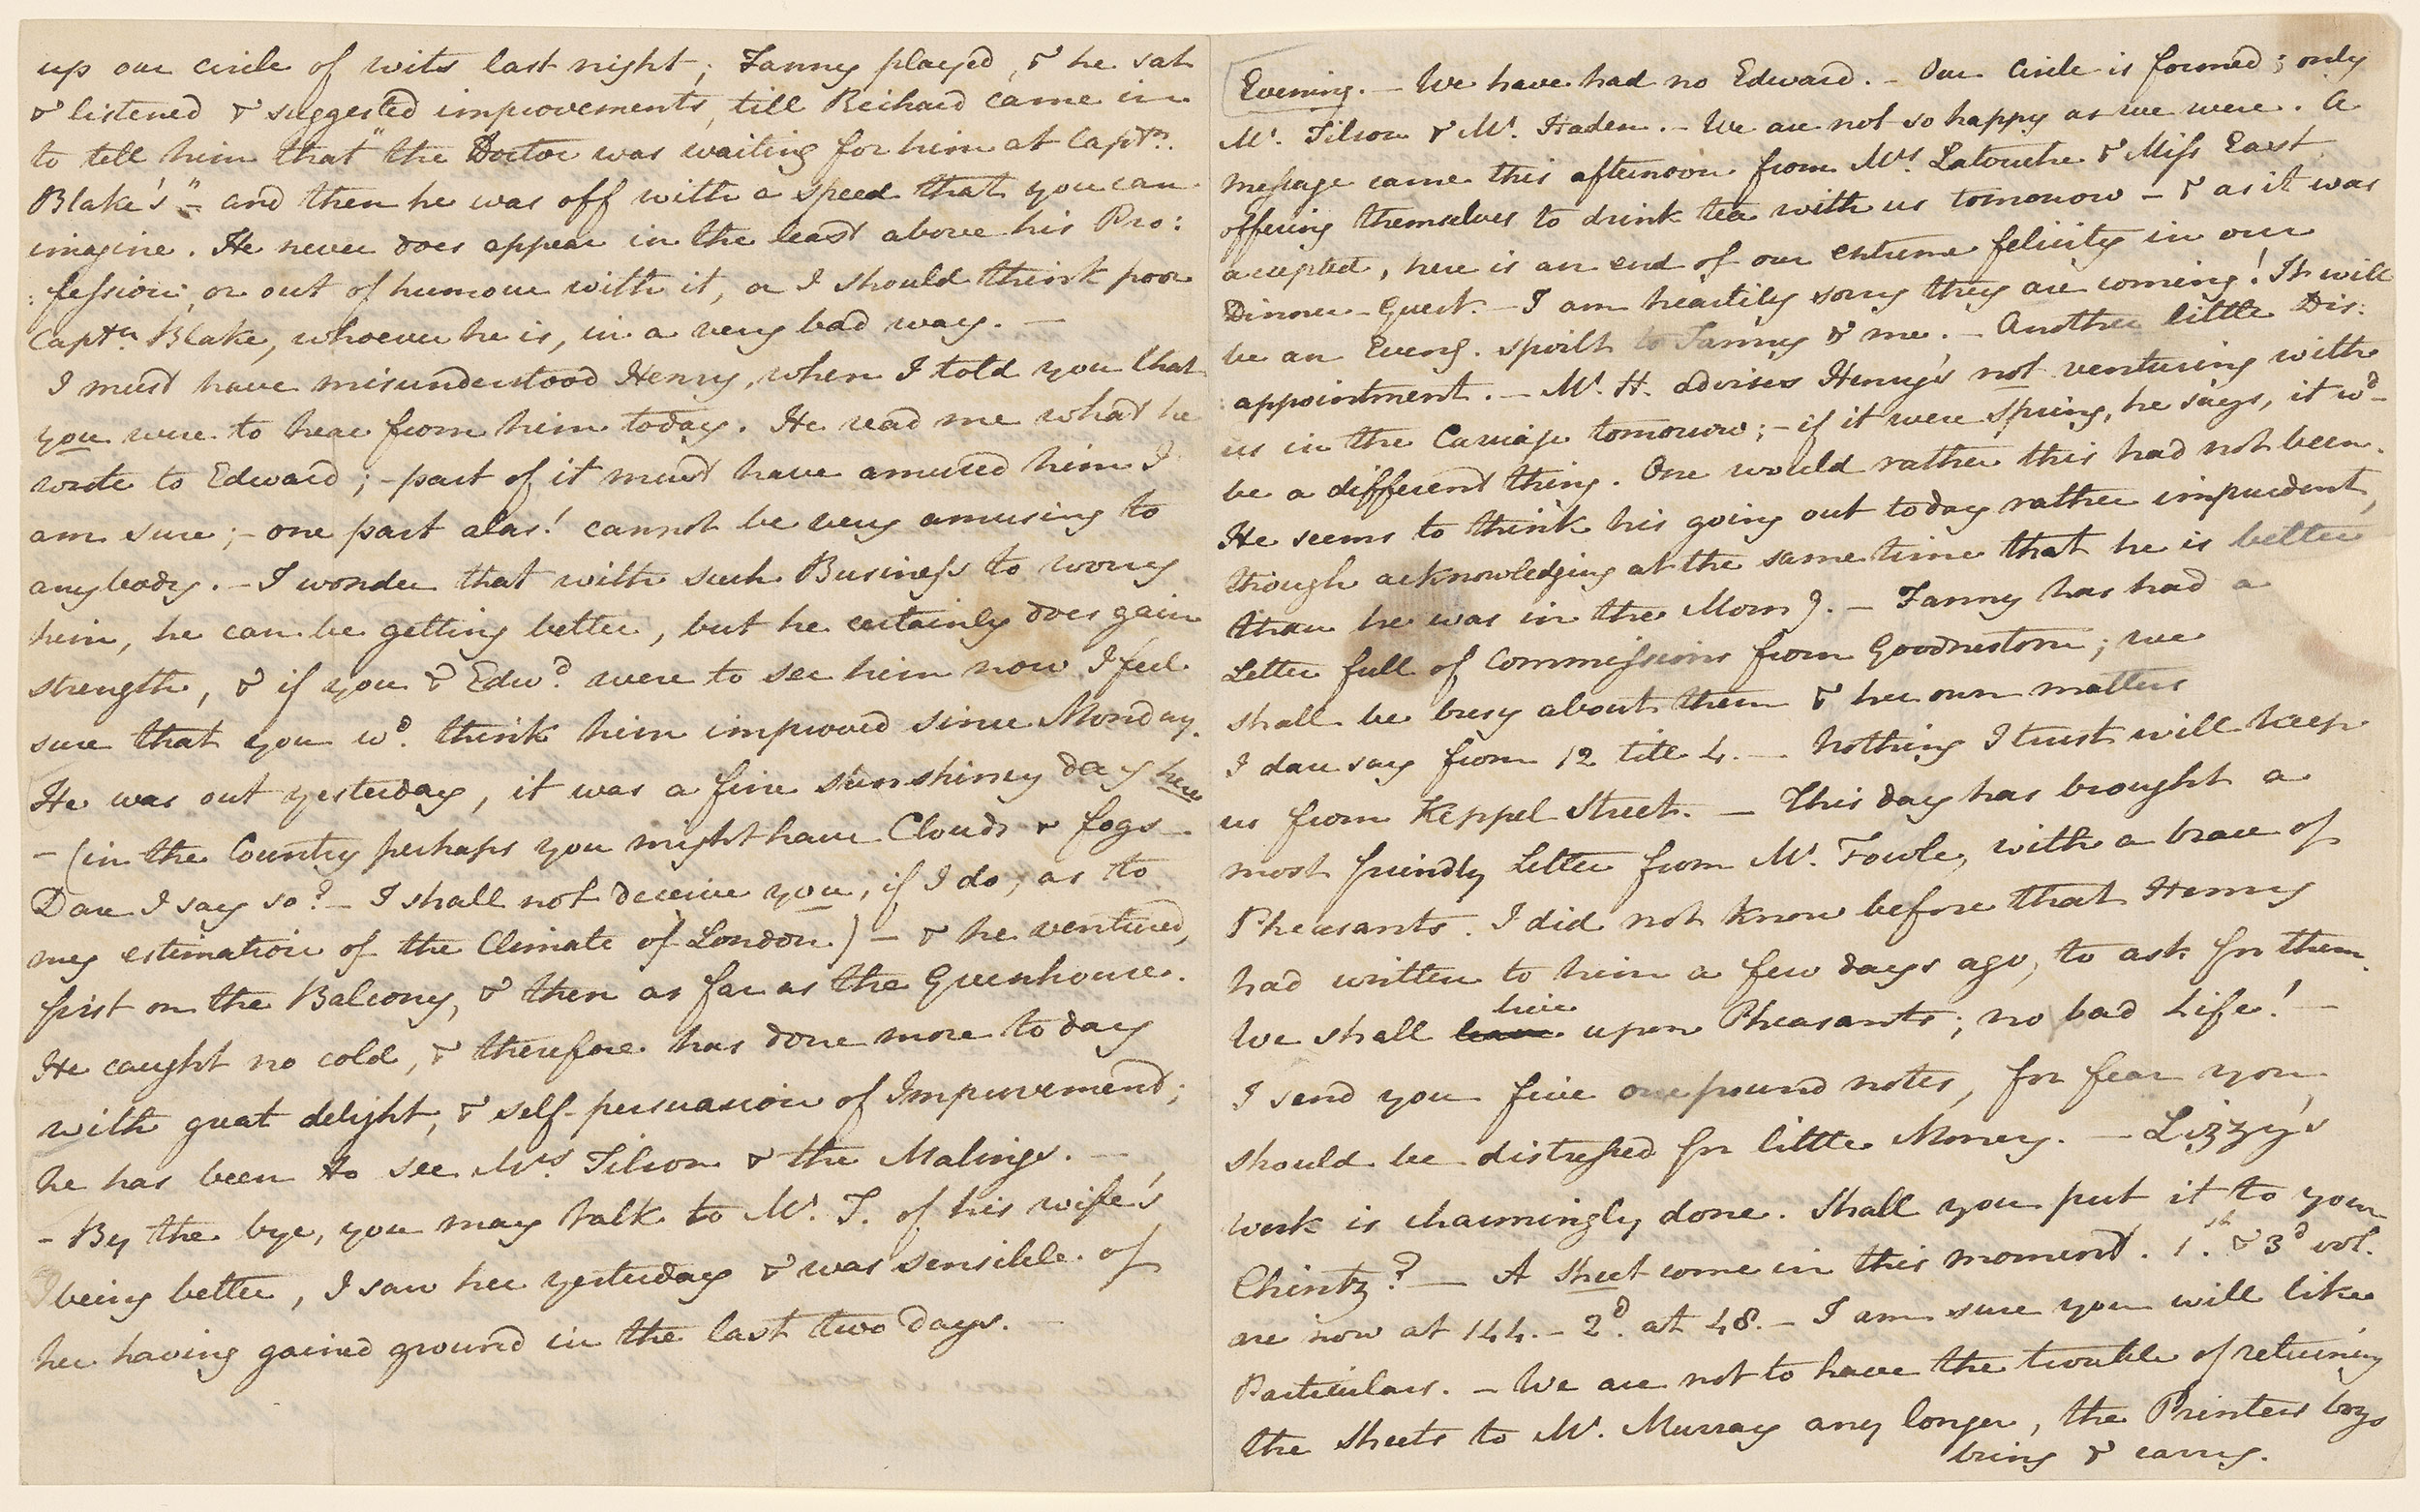 up our circle of wits last night; Fanny played, & he sat
& listened & suggested improvements, till Richard came in
to tell him that "the Doctor was waiting for him at Captn.
Blake's" – and then he was off with a speed that you can
imagine. He never does appear in the least above his Pro:
:fession, or out of humour with it, or I should think poor
Captn. Blake, whoever he is, in a very bad way. —
I must have misunderstood Henry, when I told you that
you were to hear from him today. He read me what he
wrote to Edward; – part of it must have amused him I
am sure; – one part alas! cannot be very amusing to
anybody. – I wonder that with such Business to worry
him, he can be getting better, but he certainly does gain
strength, & if you & Edwd. were to see him now I feel
sure that you wd. think him improved since Monday.
He was out yesterday, it was a fine sunshiney day here
– (in the Country perhaps you might have Clouds & fogs –
Dare I say so? – I shall not deceive you, if I do, as to
my estimation of the Climate of London) – & he ventured,
first on the Balcony, & then as far as the Greenhouse.
He caught no cold, & therefore has done more today
with great delight, & self-persuasion of Improvement;
he has been to see Mrs. Tilson & the Malings. —
– By the bye, you may talk to Mr. T. of his wife's
being better, I saw her yesterday & was sensible of
her having gained ground in the last two days. —
Evening. – We have had no Edward. – Our Circle is formed; only
Mr. Tilson & Mr. Haden. – We are not so happy as we were. A
message came this afternoon from Mrs. Latouche & Miss East
offering themselves to drink tea with us tomorrow – & as it was
accepted, here is an end of our extreme felicity in our
Dinner-Guest. – I am heartily sorry they are coming! It will
be an Eveng. spoilt to Fanny & me. – Another little Dis:
:appointment. – Mr. H. advises Henry's not venturing with
us in the Carriage tomorrow; – if it were Spring, he says, it wd.
be a different thing. One would rather this had not been.
He seems to think his going out today rather imprudent,
though acknowledging at the same time that he is better
than he was in the Morng. – Fanny has had a
Letter full of Commissions from Goodnestone; we
shall be busy about them & her own matters
I dare say from 12 till 4. — Nothing I trust will keep
us from Keppel Street. — This day has brought a
most friendly Letter from Mr. Fowle, with a brace of
Pheasants. I did not know before that Henry
had written to him a few days ago, to ask for them.
live
We shall upon Pheasants; no bad Life! —
I send you five one pound notes, for fear you
should be distressed for little Money. — Lizzy's
work is charmingly done. Shall you put it to your
Chintz? — A Sheet come in this moment. 1st. & 3d vol.
are now at 144. – 2d. at 48. – I am sure you will like
Particulars. – We are not to have the trouble of returning
the Sheets to Mr. Murray any longer, the Printer's boys
bring & carry.